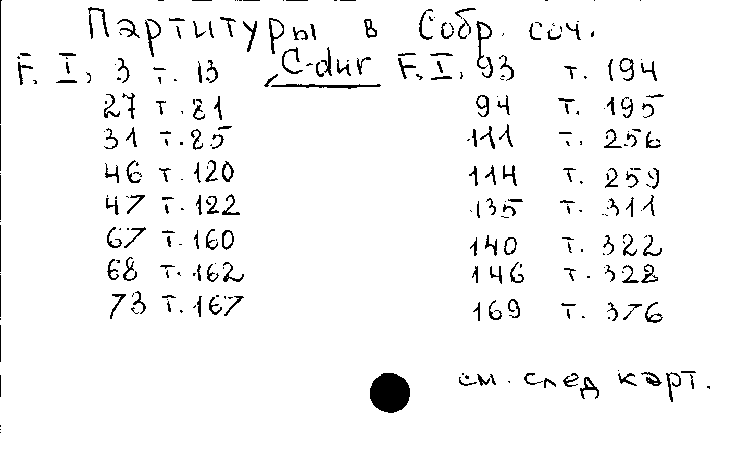 Партитуры в Собр. соч.
F. I, 3 т. 13 C-dur F. I, 93 т. 194
27 т. 81 94 т. 195
31 т. 85 111 т. 256
46 т. 120 114 т. 259
47 т. 122 135 т. 311
67 т. 160 140 т. 322
68 т. 162 146 т. 328
73 т. 167 169 т. 376
см. след карт.